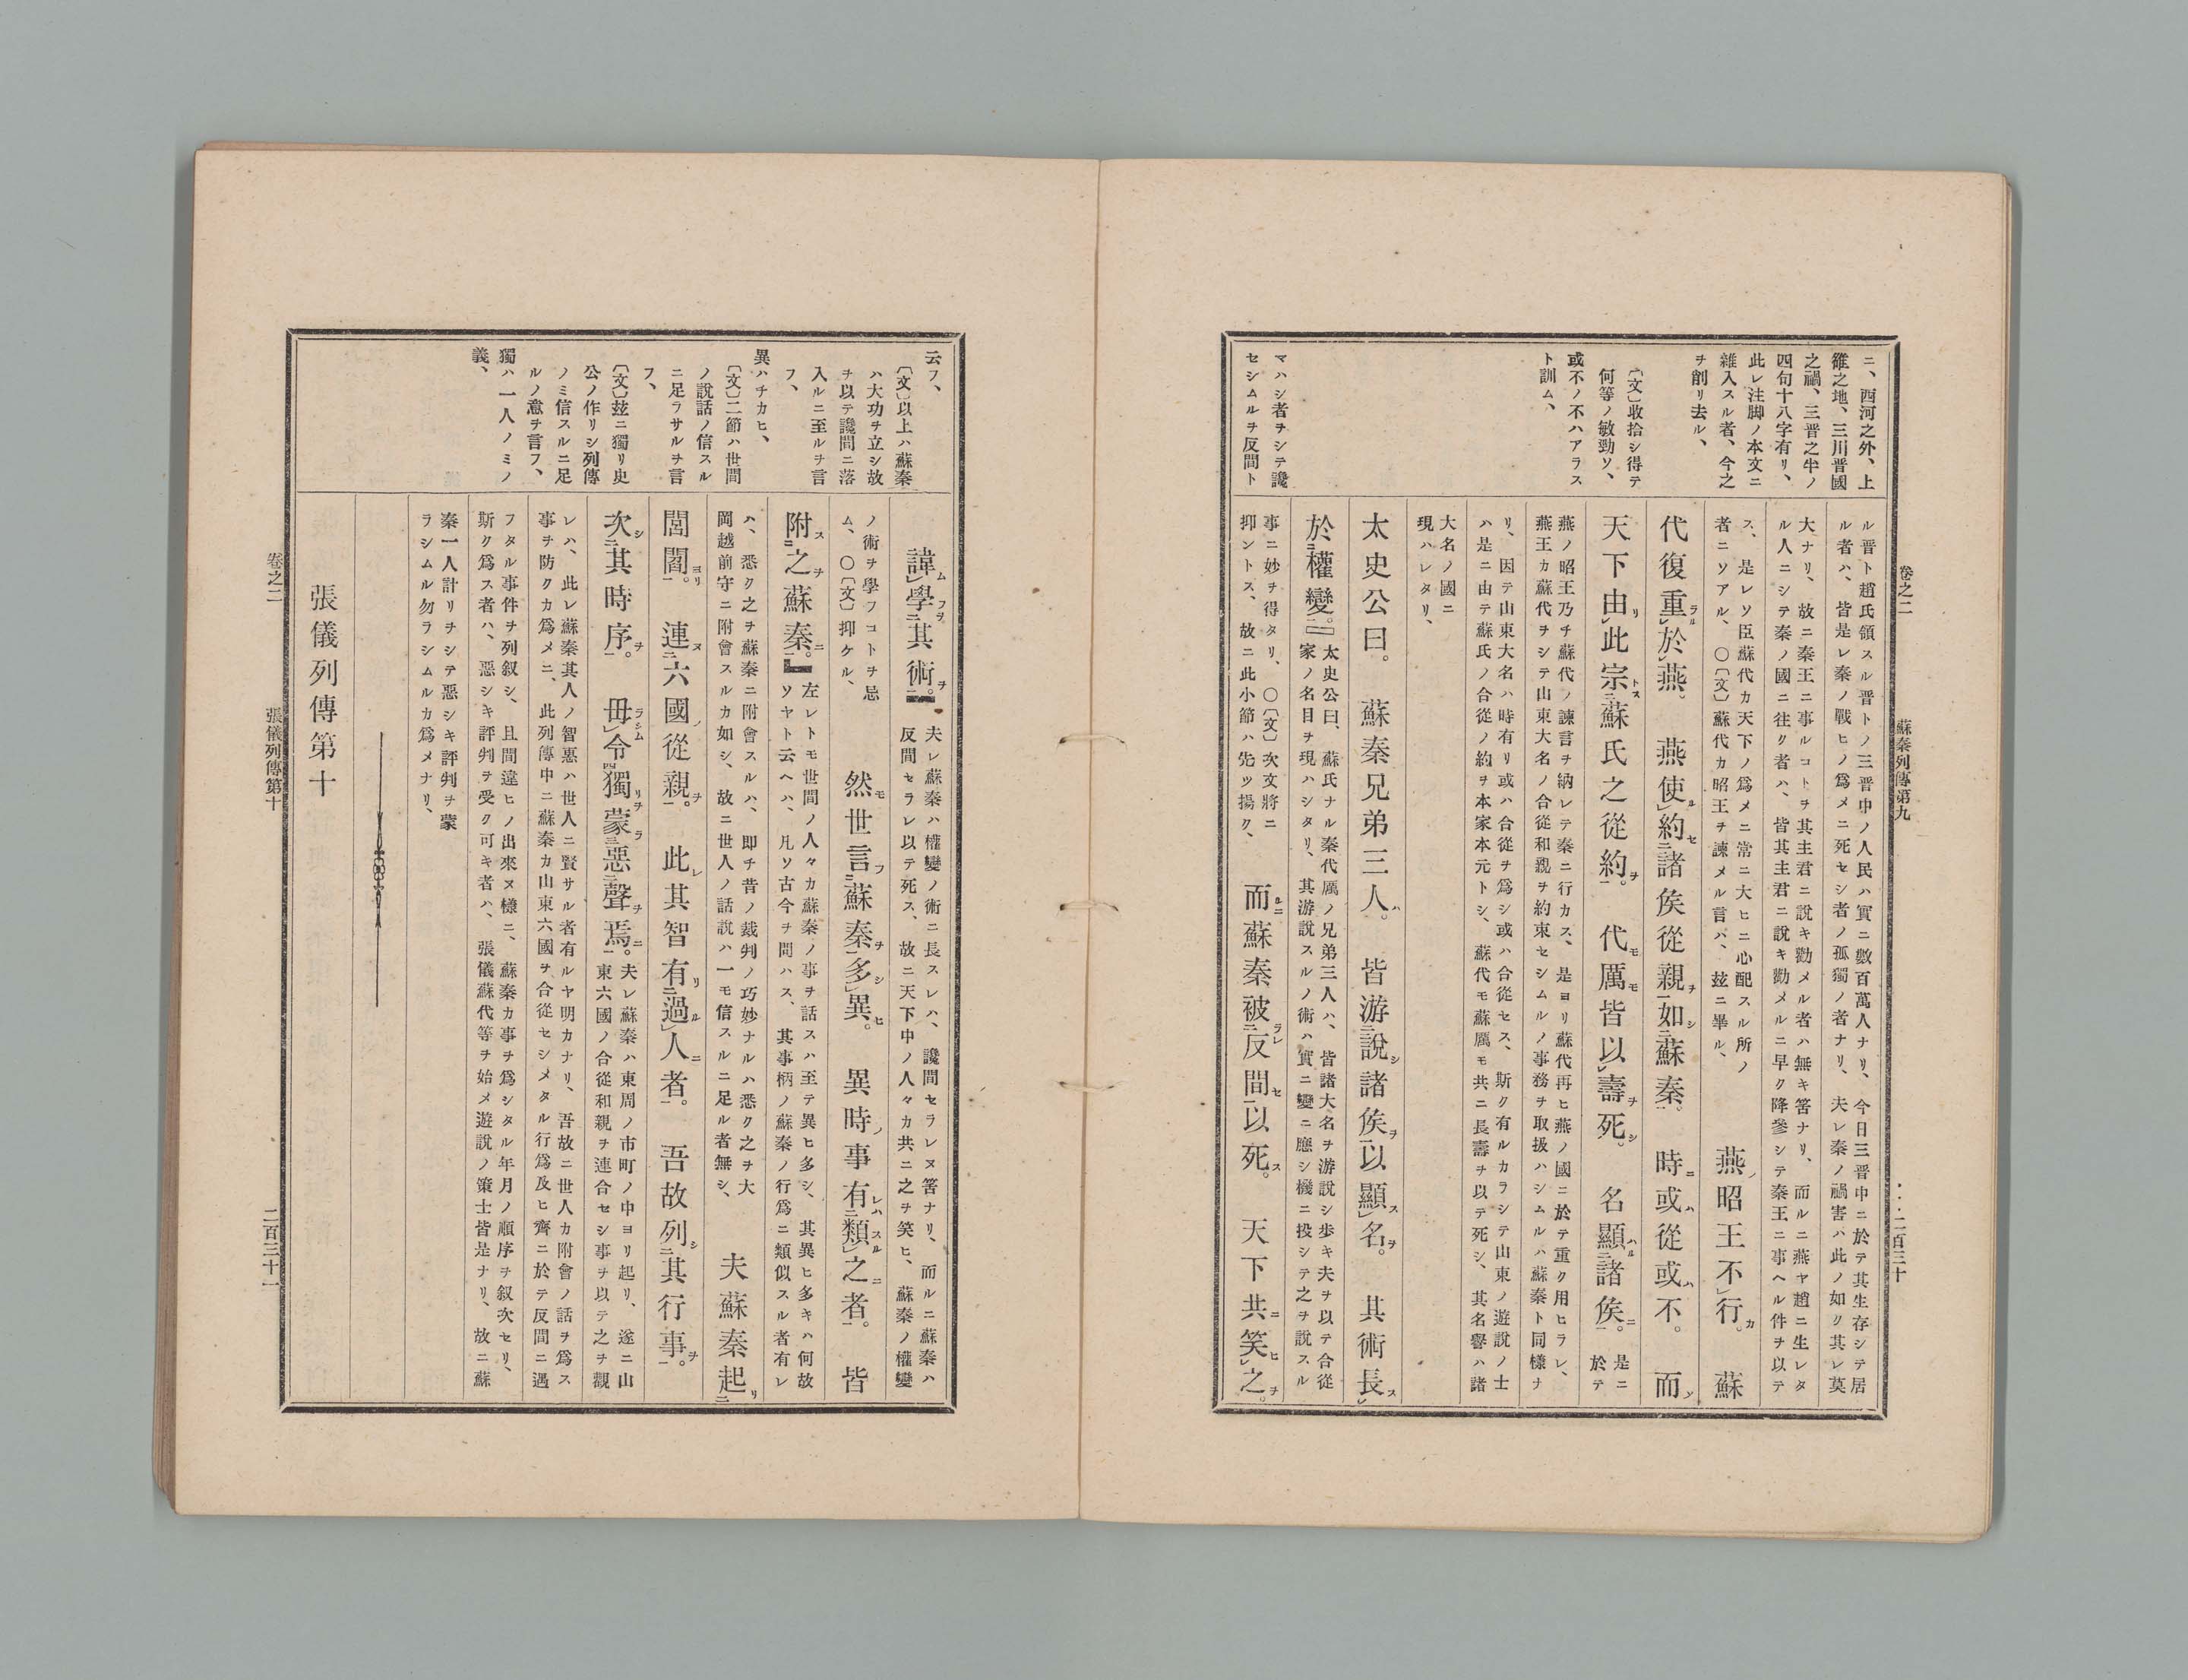 卷之二
蘇秦列傳第九
二百三十
ニ、西河之外、上
雒之地、三川晋國
之禍、三晋之半ノ
四句十八字有リ、
此レ注脚ノ本文ニ
雜入スル者、今之
ヲ削リ去ル、
〔文〕收拾シ得テ
何等ノ敏勁ソ、
或不ノ不ハアラス
ト訓ム、
マハシ者ヲシテ讒
セシムルヲ反間ト
ル晋ト趙氏領スル晋トノ三晋中ノ人民ハ實ニ數百萬人ナリ、今日三晋中ニ於テ其生存シテ居
ル者ハ、皆是レ秦ノ戰ヒノ爲メニ死セシ者ノ孤獨ノ者ナリ、夫レ秦ノ禍害ハ此ノ如ク其レ莫
大ナリ、故ニ秦王ニ事ルコトヲ其主君ニ說キ勸メル者ハ無キ筈ナリ、而ルニ燕ヤ趙ニ生レタ
ル人ニシテ秦ノ國ニ往ク者ハ、皆其主君ニ說キ勸メルニ早ク降參シテ秦王ニ事ヘル件ヲ以テ
ス、是レソ臣蘇代カ天下ノ爲メニ常ニ大ヒニ心配スル所ノ
者ニソアル、〇〔文〕蘇代カ昭王ヲ諫メル言ハ、玆ニ畢ル、
燕ノ昭王不行カ。蘇
代復重ラル於燕。燕使ル約セ諸侯從親ヲ如シ蘇秦。時ニ或ハ從或ハ不。而ノ
天下由リ此宗トス蘇氏之從約ヲ。代モ厲モ皆以壽ヲ死シ。名顯ハル諸侯ニ。
是ニ
於テ
燕ノ昭王乃チ蘇代ノ諫言ヲ納レテ秦ニ行カス、是ヨリ蘇代再ヒ燕ノ國ニ於テ重ク用ヒラレ、
燕王カ蘇代ヲシテ山東大名ノ合從和親ヲ約束セシムルノ事務ヲ取扱ハシムルハ蘇秦ト同樣ナ
リ、因テ山東大名ハ時有リ或ハ合從ヲ爲シ或ハ合從セス、斯ク有ルカラシテ山東ノ遊說ノ士
ハ是ニ由テ蘇氏ノ合從ノ約ヲ本家本元トシ、蘇代モ蘇厲モ共ニ長壽ヲ以テ死シ、其名譽ハ諸
大名ノ國ニ
現ハレタリ、
太史公曰。蘇秦兄弟三人ハ。皆游說シ諸侯ヲ以顯ス名ヲ。其術長ス
於權變ニ。
太史公曰、蘇氏ナル秦代厲ノ兄弟三人ハ、皆諸大名ヲ游說シ步キ夫ヲ以テ合從
家ノ名目ヲ現ハシタリ、其游說スルノ術ハ實ニ變ニ應シ機ニ投シテ之ヲ說スル
事ニ妙ヲ得タリ、〇〔文〕次文將ニ
抑ントス、故ニ此小節ハ先ツ揚ク、
而ルニ蘇秦被ラレ反間セ以死ス。天下共ニ笑ヒ之ヲ。
云フ、
〔文〕以上ハ蘇秦
ハ大功ヲ立シ故
ヲ以テ讒間ニ落
入ルニ至ルヲ言
フ、
異ハチカヒ、
〔文〕二節ハ世間
ノ說話ノ信スル
ニ足ラサルヲ言
フ、
〔文〕玆ニ獨リ史
公ノ作リシ列傳
ノミ信スルニ足
ルノ意ヲ言フ、
獨ハ一人ノミノ
義、
諱ム學フヲ其術ヲ。
夫レ蘇秦ハ權變ノ術ニ長スレハ、讒間セラレヌ筈ナリ、而ルニ蘇秦ハ
反間セラレ以テ死ス、故ニ天下中ノ人々カ共ニ之ヲ笑ヒ、蘇秦ノ權變
ノ術ヲ學フコトヲ忌
ム、〇〔文〕抑ケル、
然モ世言フ蘇秦ヲ多シ異ヒ。異時ノ事有レハ類スル之ニ者。皆
附ス之ヲ蘇秦ニ。
左レトモ世間ノ人々カ蘇秦ノ事ヲ話スハ至テ異ヒ多シ、其異ヒ多キハ何故
ソヤト云ヘハ、凡ソ古今ヲ問ハス、其事柄ノ蘇秦ノ行爲ニ類似スル者有レ
ハ、悉ク之ヲ蘇秦ニ附會スルハ、即チ昔ノ裁判ノ巧妙ナルハ悉ク之ヲ大
岡越前守ニ附會スルカ如シ、故ニ世人ノ話說ハ一モ信スルニ足ル者無シ、
夫蘇秦起リ
閭閻ヨリ。連ヌ六國ノ從親ヲ。此レ其智有リ過ル人ニ者。吾故列シ其行事ヲ。
次シ其時序ヲ。毋ラシム令獨リヲ蒙ラ惡聲ヲ焉ニ。
夫レ蘇秦ハ東周ノ市町ノ中ヨリ起リ、遂ニ山
東六國ノ合從和親ヲ連合セシ事ヲ以テ之ヲ觀
レハ、此レ蘇秦其人ノ智惠ハ世人ニ賢サル者有ルヤ明カナリ、吾故ニ世人カ附會ノ話ヲ爲ス
事ヲ防クカ爲メニ、此列傳中ニ蘇秦カ山東六國ヲ合從セシメタル行爲及ヒ齊ニ於テ反間ニ遇
フタル事件ヲ列叙シ、且間違ヒノ出來ヌ樣ニ、蘇秦カ事ヲ爲シタル年月ノ順序ヲ叙次セリ、
斯ク爲ス者ハ、惡シキ評判ヲ受ク可キ者ハ、張儀蘇代等ヲ始メ遊說ノ策士皆是ナリ、故ニ蘇
秦一人計リヲシテ惡シキ評判ヲ蒙
ラシムル勿ラシムルカ爲メナリ、
張儀列傳第十
卷之二
張儀列傳第十
二百三十一